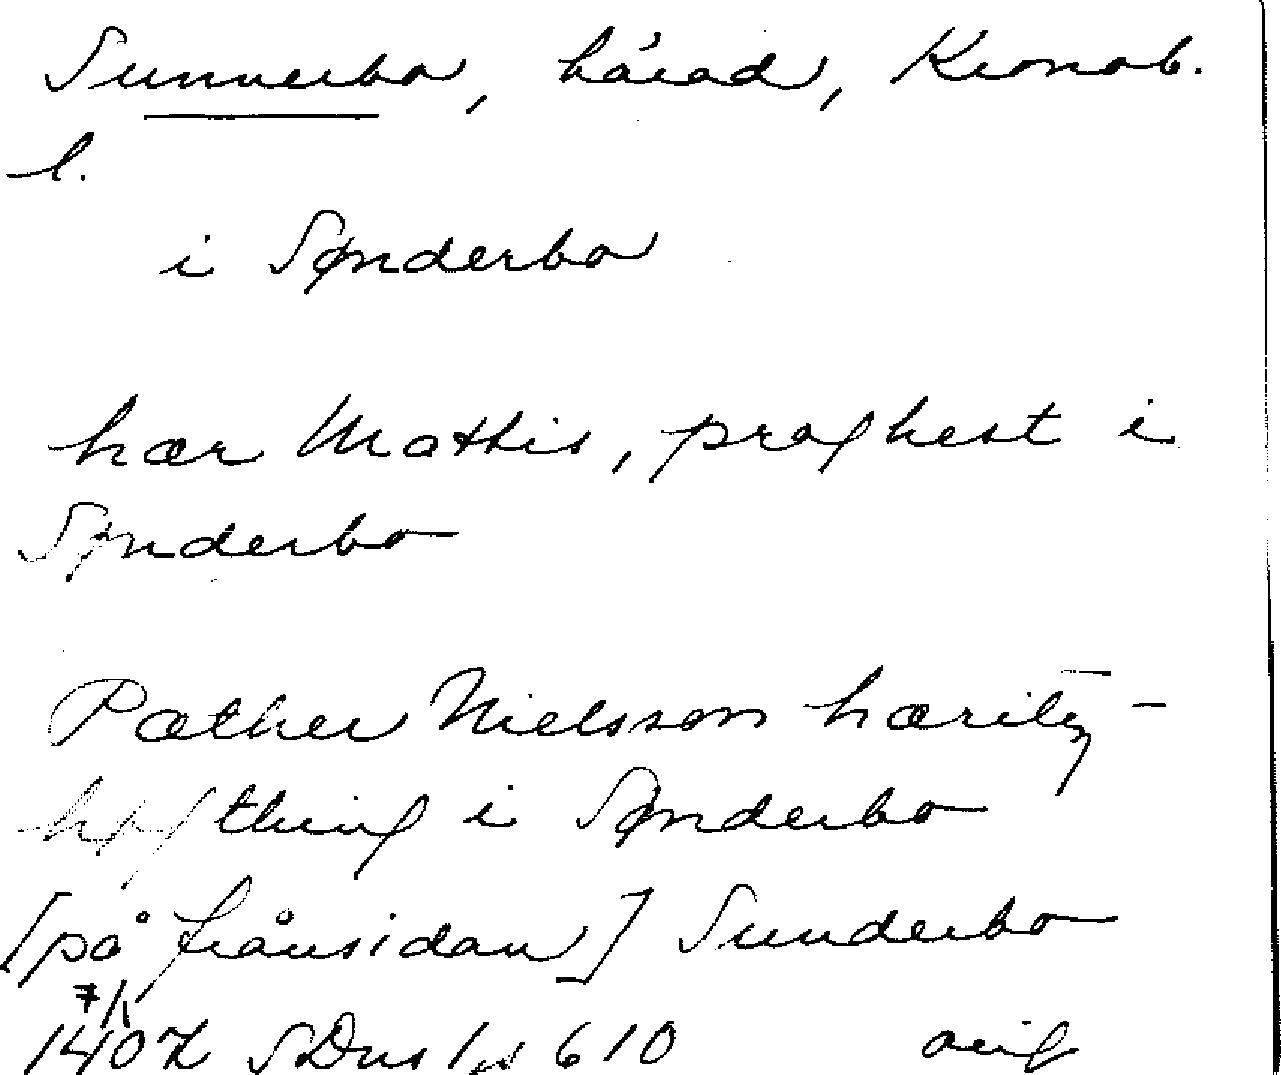 Sunnerbo, härad, Kronob.
l.
i Sønderbo
hær Mattis, proghest i
Sønderbo
Pæther Nielsson hæritz-
høfthing i Sønderbo
[på frånsidan] Sunderbo
1407 7/1 SDns 1 s 610 orig